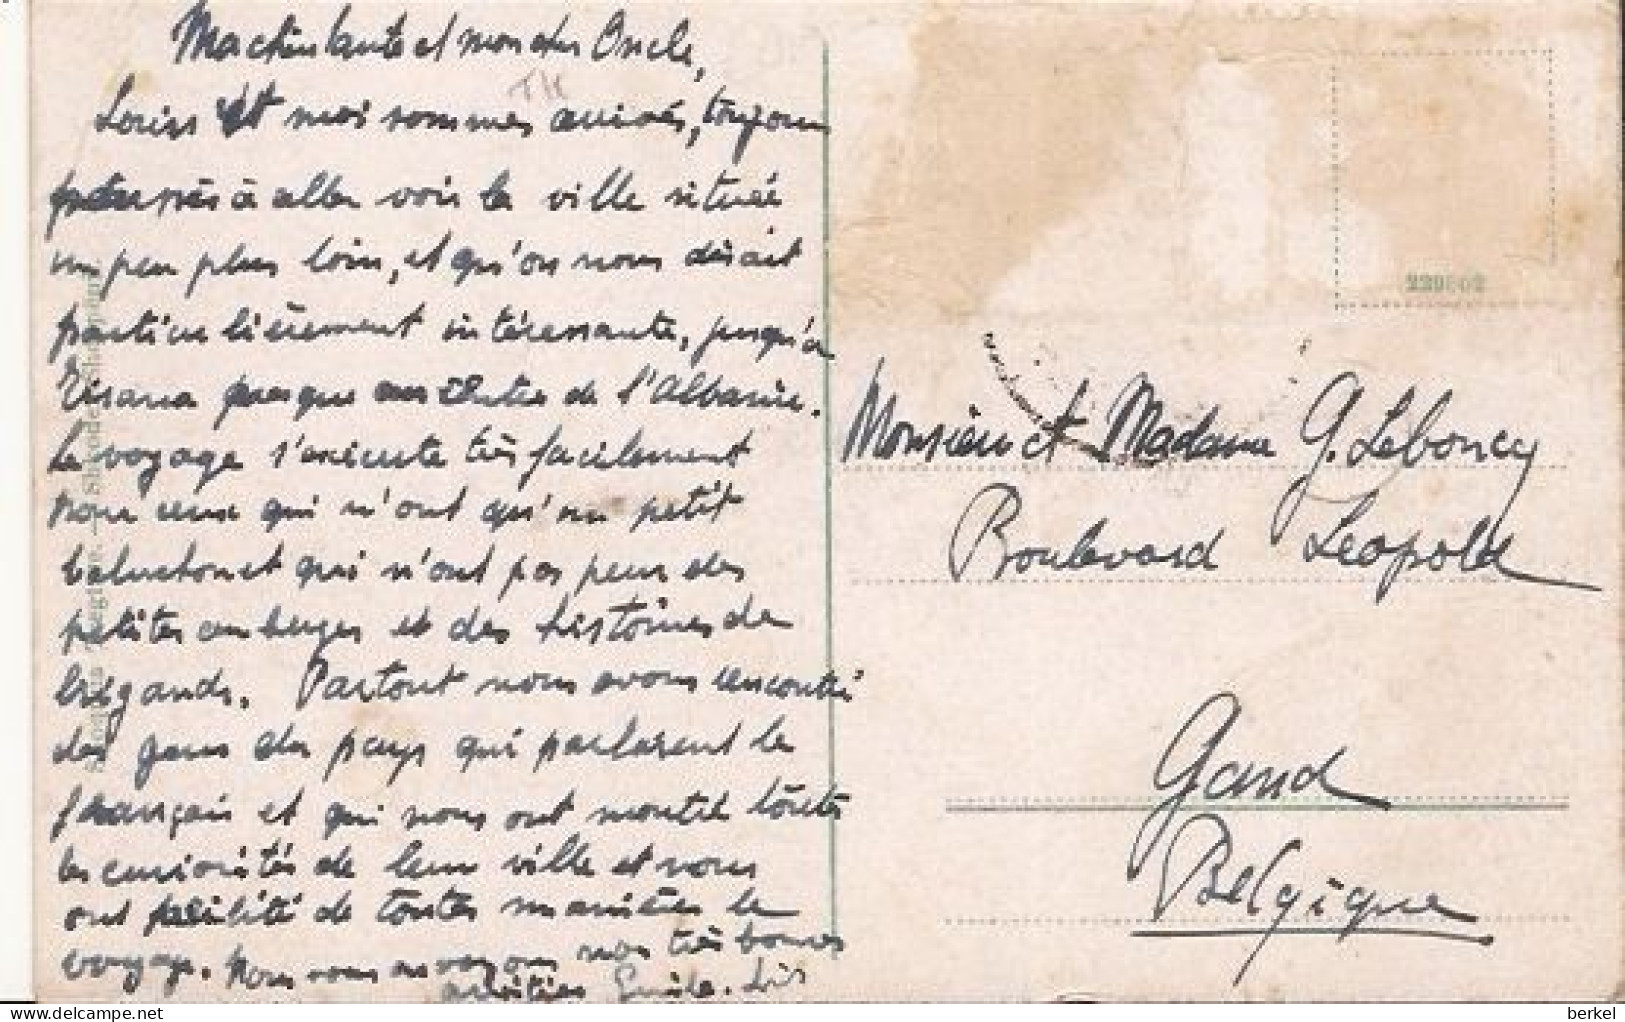 Ma chère tante et mon cher Oncle,
Louis et moi sommes arrivés, toujours
prêts à aller voir la ville située
un peu plus loin, et qu'on nous disait
particulièrement intéressante, jusqu'à
Tirana presque au centre de l'Albanie.
Le voyage s'exécute très facilement
pour ceux qui n'ont qu'un petit
baluchon et qui n'ont pas peur des
petites auberges et des histoires de
brigands. Partout nous avons rencontré
des gens du pays qui parlaient le
français et qui nous ont montré toutes
les curiosités de leur ville et nous
ont facilité de toutes manières le
voyage. Nous vous envoyons nos très bonnes
amitiés
229602
Monsieur et Madame G. Leboucq
Boulevard Léopold
Gand
Belgique
berkel